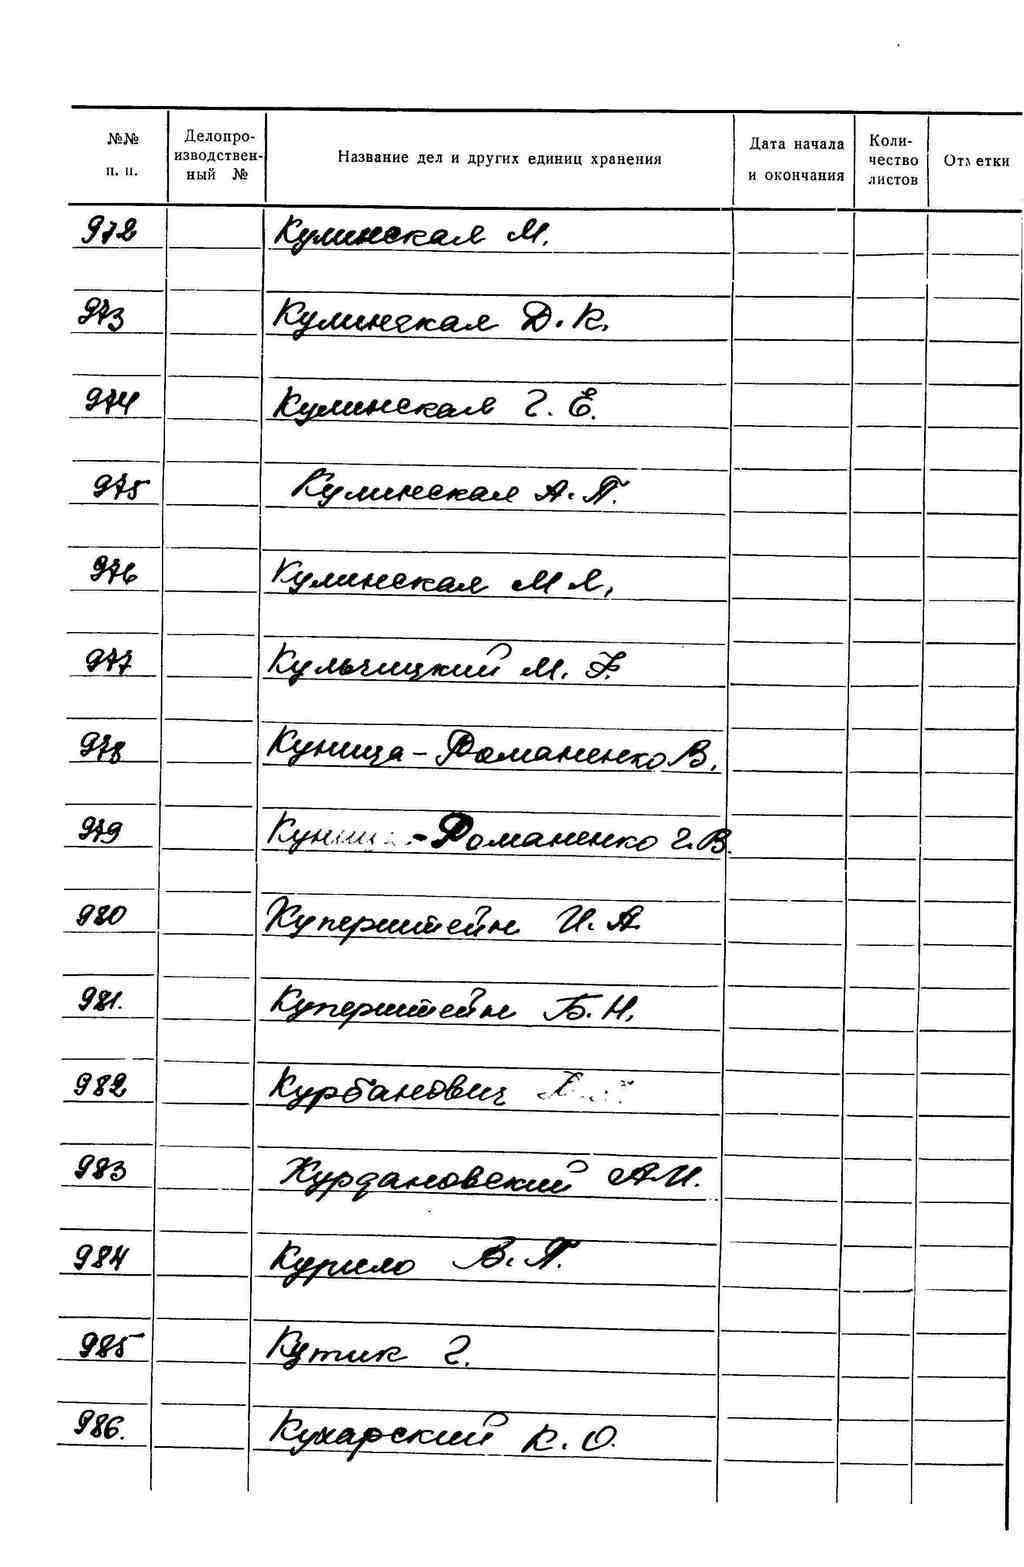 №№ п. п. Делопроизводственный № Название дел и других единиц хранения Дата начала и окончания Количество листов Отметки
972 Кулинская М.
973 Кулинская Д. К.
974 Кулинская Г. Е.
975 Кулинская А. П.
976 Кулинская М Я,
977 Кульчицкий М. Ф.
978 Куница-Романенко В.
979 -Романенко Г. В.
980 Куперштейн И. А.
981. Куперштейн Б. Н.
982 Курбанович
983 Курдановский А И.
984 Курило В. П.
985 Кутик Г.
986. Кухарский К. О.